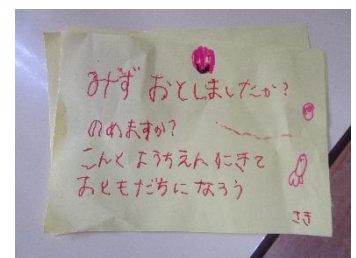 みず おとしましたか?
のめますか?
こんど ようちえんにきて
おともだちになろう
さき